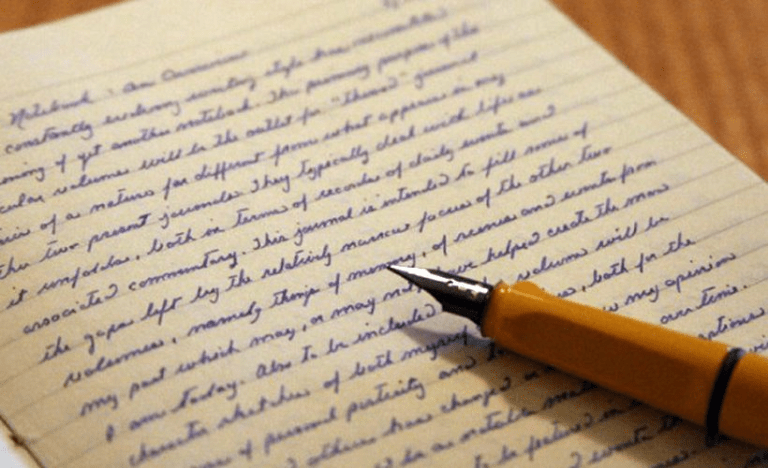 Notebook : An Overview
constantly evolving writing style has necessitated
of yet another notebook. The primary purpose of the
volumes will be the outlet for "themed" journal
of a nature far different from what appears in my
other two present journals. They typically deal with life as
it unfolds, both in terms of recorded daily events and
associated commentary. This journal is intended to fill some of
the gaps left by the relatively narrow focus of the other two
volumes, namely things of memory, of scenes and events from
my past which may, or may not, have helped create the man
I am today. Also to be included volume will be
character sketches of both myself both for the
of personal posterity and my opinion
others has changed over time.
be a notable
to be